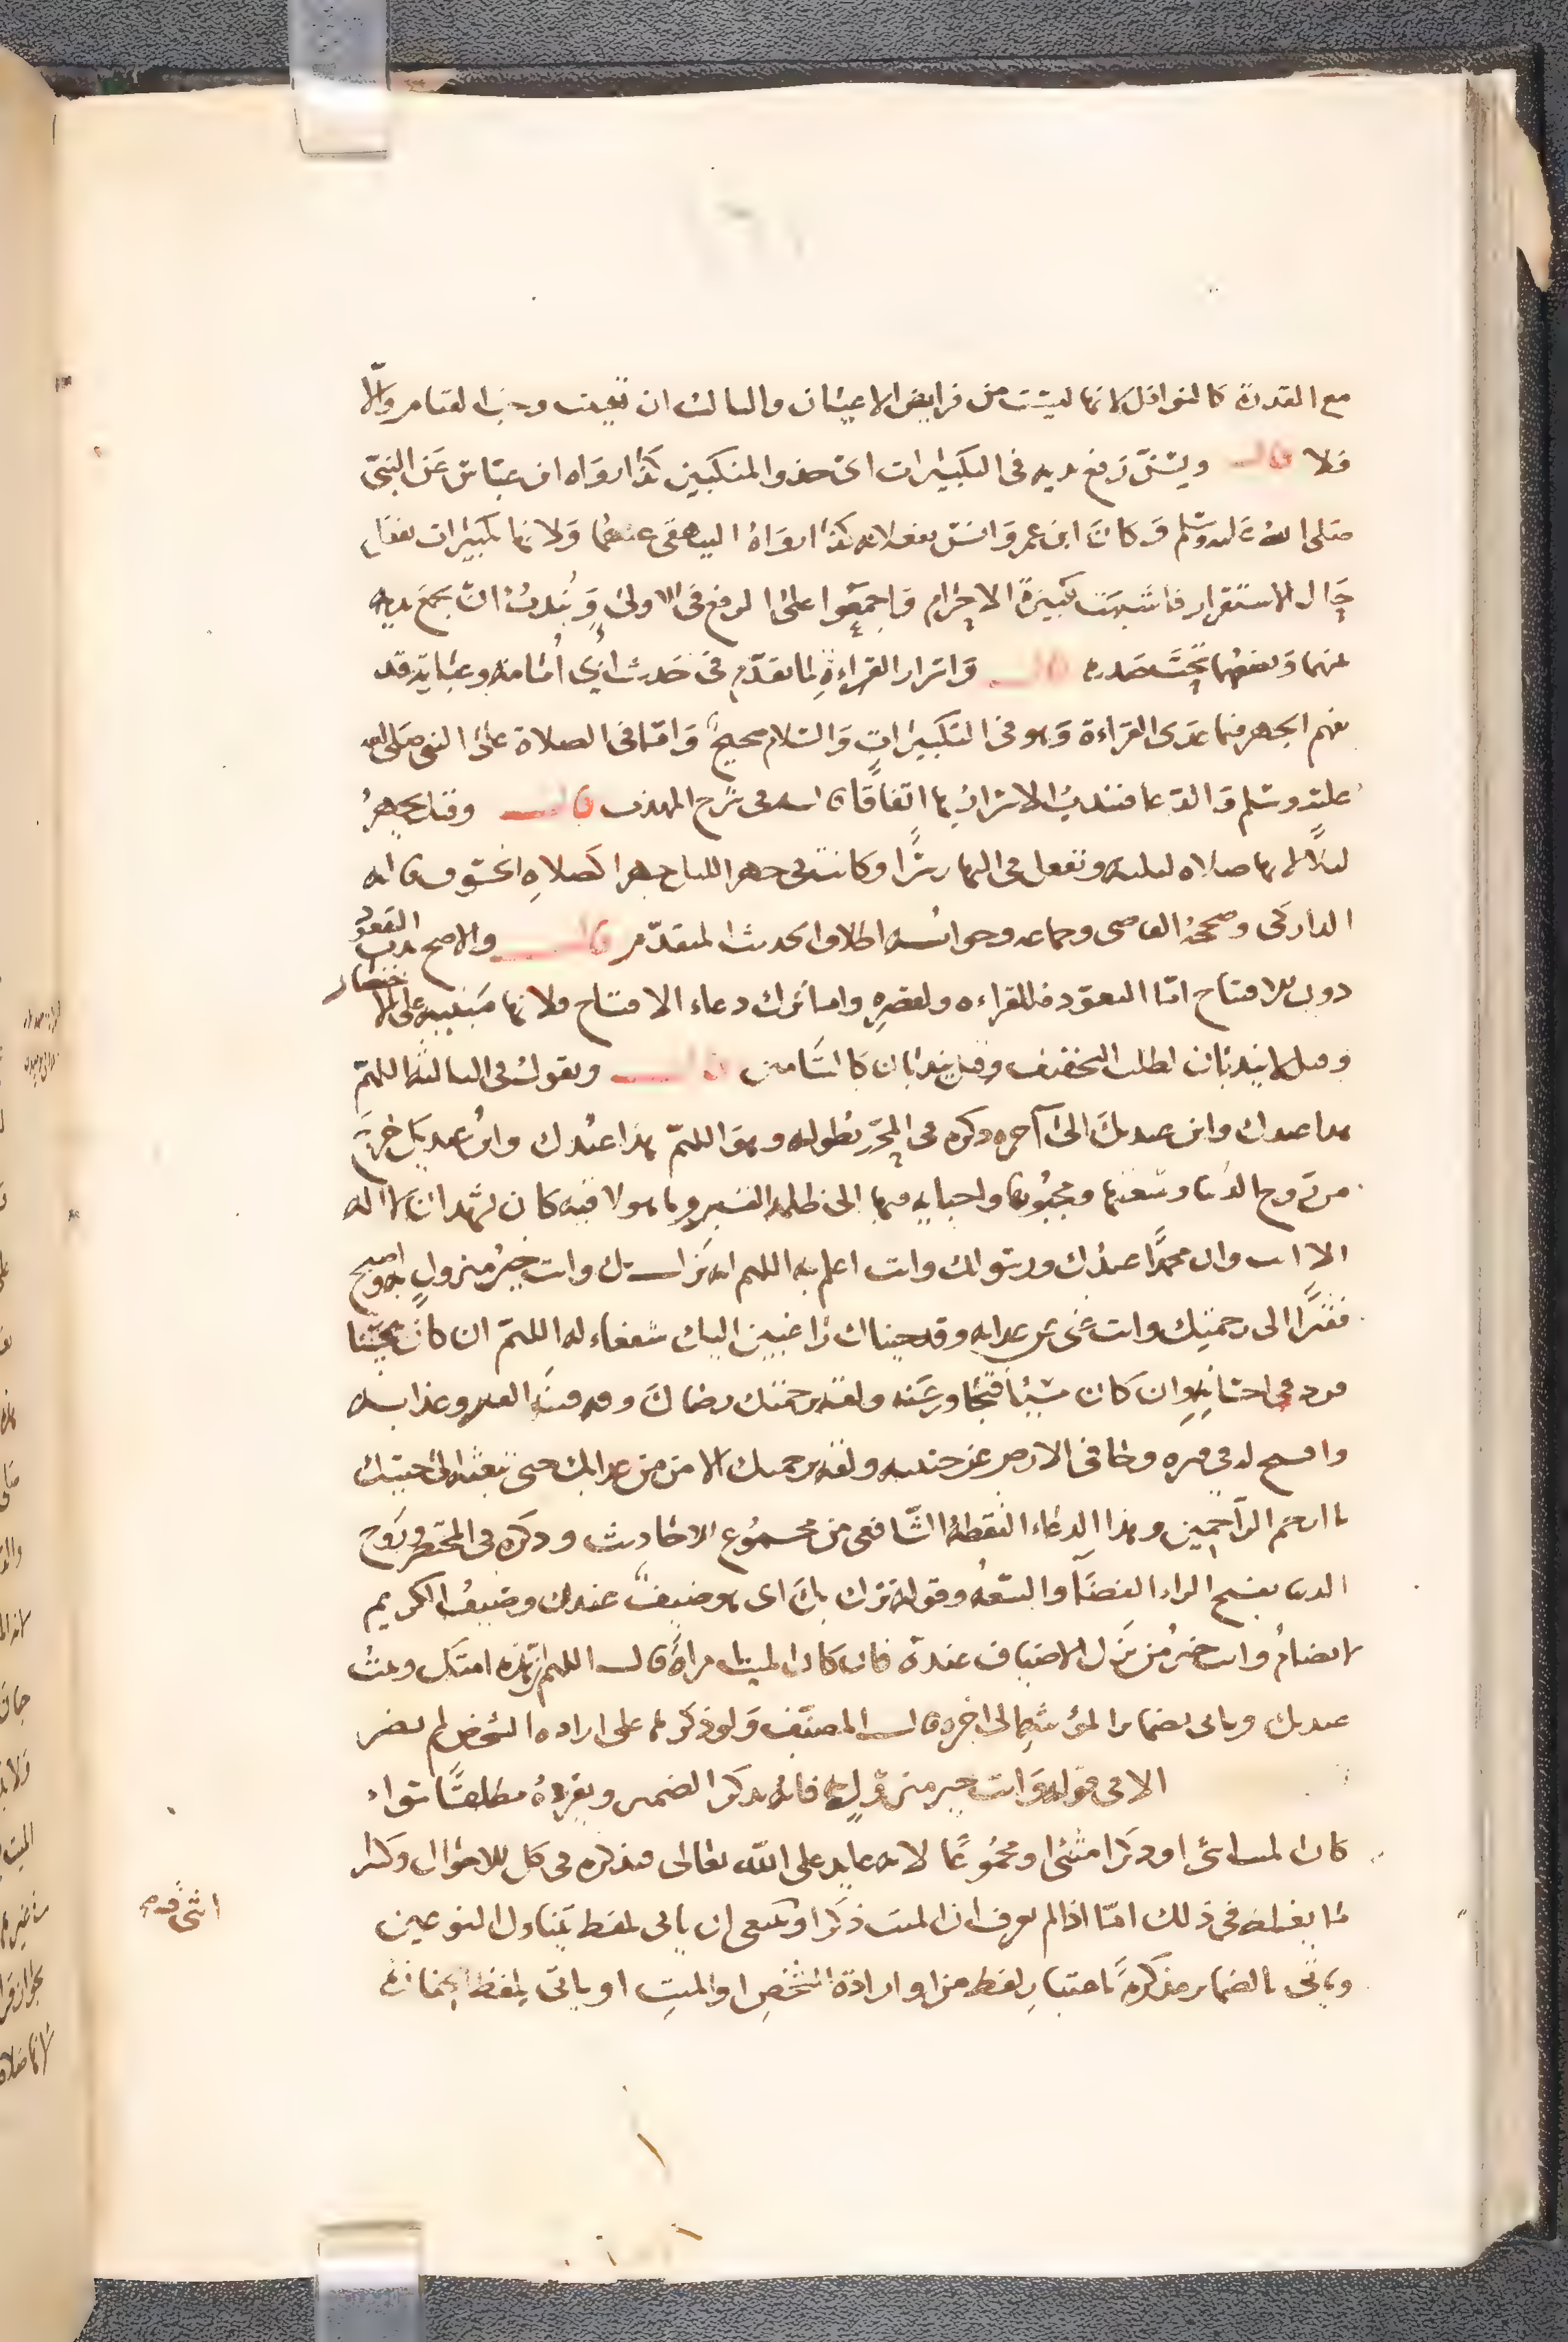 مع القدرة كالنوافل لانها ليست من فرايض الاعيان والثالث ان تعينت وجب القيام والا
فلا قال ويسن رفع يديه في التكبيرات اي حذو المنكبين كذا رواه ابن عباس عن النبي
صلى الله عليه وسلم وكان ابن عمر وانس يفعلانه كذا رواه البيهقي عنهما ولانها تكبيرات تفعل
حال الاستقرار فاشبهت تكبيرة الاحرام واجمعوا على الرفع في الاولى ويندب ان يجمع يديه
بينهما ويضعهما تحت صدره قال واسرار القراءة لما تقدم في حديث ابي امامة وعبارته قد
تفهم الجهر فيما عدى القراءة وهو في التكبيرات والسلام صحيح واما في الصلاة على النبي صلى الله
عليه وسلم والدعا فيندب الاسرار بها اتفاقا قاله في شرح المهذب قال وقيل يجهر
ليلا لانها صلاة ليلية وتفعل في النهار سرا وكانت في جهر الليل جهرا كصلاة الخسوف قاله
الداركي وصححه القاضي وجماعه وجوابه اطلاق الحديث المتقدم قال والاصح ندب التعوذ
دون الافتتاح اما التعوذ فللقراءه ولقصره واما ترك دعاء الافتتاح فلانها مبنية على الاختصار
وقيل لا يندبان لطلب التخفيف وقيل يندبان كالتامين قال ويقول في الثالثة اللهم
هذا عبدك وابن عبديك الى آخره ذكره في المحرر بطوله وهو اللهم هذا عبدك وابن عبديك خرج
من روح الدنيا وسعتها ومحبوبها واحبايه فيها الى ظلمة القبر وما هو لاقيه كان يشهد ان لا اله
الا انت وان محمدا عبدك ورسولك وانت اعلم به اللهم انه نزل بك وانت خير منزول به واصبح
فقيرا الى رحمتك وانت غني عن عذابه وقد جيناك راغبين اليك شفعاء له اللهم ان كان محسنا
فزد في احسانه وان كان مسيئا فتجاوز عنه ولقه برحمتك رضاك وقه فتنة القبر وعذابه
وافسح له في قبره وجاف الارض عن جنبيه ولقه برحمتك الامن من عذابك حتى تبعثه الى جنتك
يا ارحم الراحمين وهذا الدعاء التقطه الشافعي من مجموع الاحاديث وذكره في المختصر وروح
الدنيا بفتح الراء الفضاء والسعة وقوله نزل بك اي هو ضيف عندك وضيف الكريم
لا يضام وانت خير من نزل الاضياف عنده فان كان الميت امراة قال اللهم هذه امتك وبنت
عبديك وياتي بضماير المؤنث الى اخره قال المصنف ولو ذكرها على ارادة الشخص لم يضر
الا في قوله وانت خير منزول به فانه يذكر الضمير ويفرده مطلقا سواء
كان الميت انثى او ذكرا مثنى او مجموعا لانه عايد على الله تعالى فيذكره في كل الاحوال وكثيرا
ما يغلط في ذلك اما اذا لم يعرف ان الميت ذكرا وانثى فينبغي ان ياتي بلفظ يتناول النوعين
وياتي بالضماير مذكرة باعتبار لفظ من او ارادة الشخص او الميت او ياتي بلفظ الجنازة